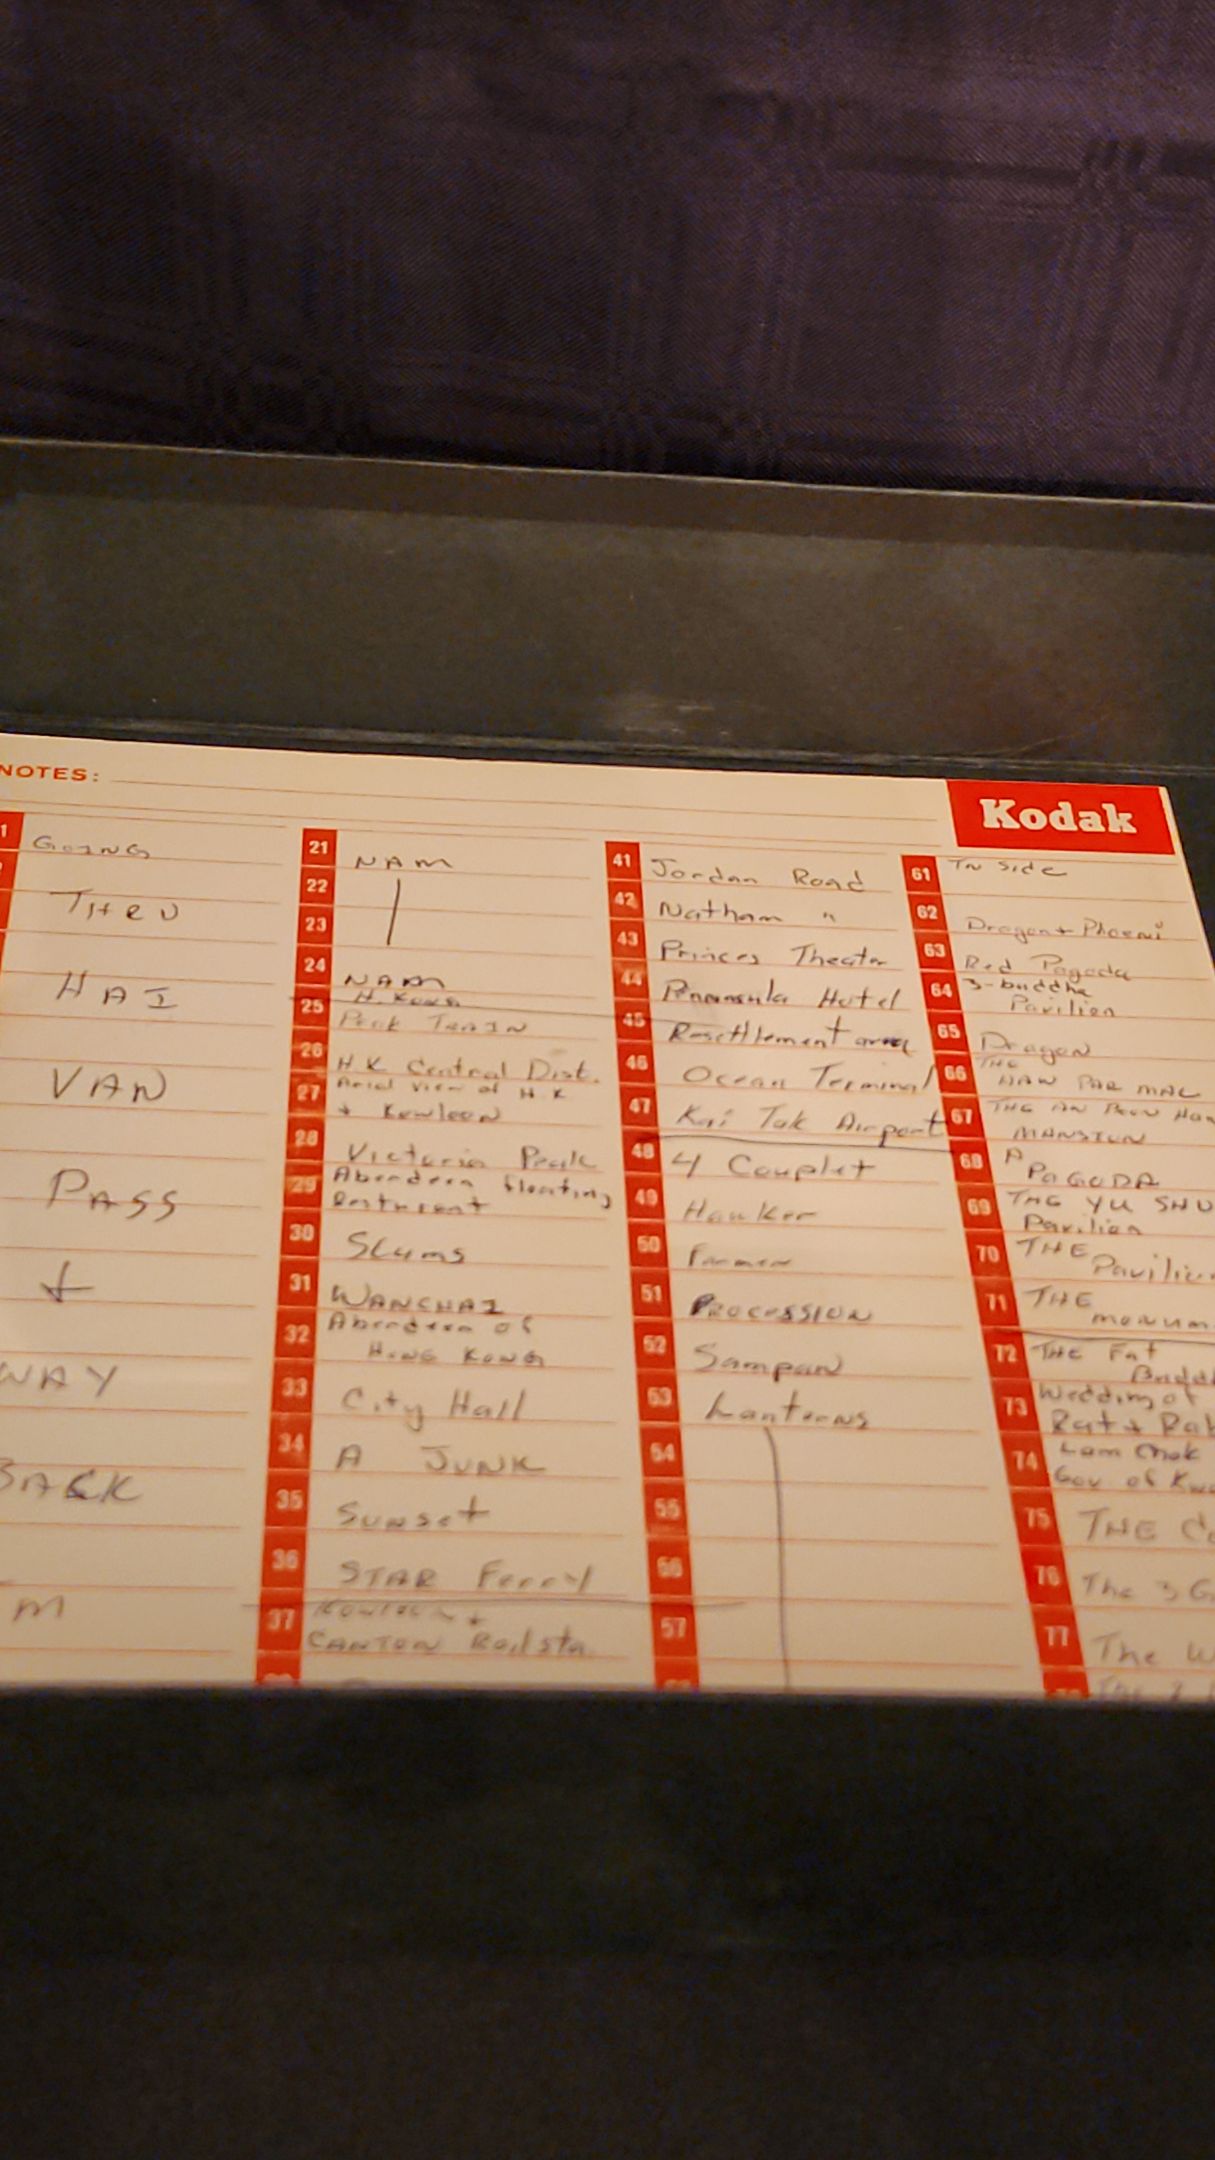 NOTES:
Kodak
1
GOING
THRU
HAI
VAN
PASS
+
WAY
BACK
M
21 NAM
22
23
24 NAM
H. KONG
25 Peak TRAIN
26 H K Central Dist.
27 Arial View of H.K
+ Kowloon
28 Victoria Peak
29 Aberdeen floating
30 Slums
31 WANCHAI
32 Aberdeen of
HONG KONG
33 City Hall
34 A JUNK
35 Sunset
36 STAR Ferry
37 Kowloon +
CANTON Rail sta.
41 Jordan Road
42 Natham "
43 Princes Theater
44 Penensula Hotel
45 Resettlement area
46 Ocean Terminal
47 Kai Tak Airport
48 4 Couplet
49 Hawker
50 Farmer
51 PROCESSION
52 Sampan
53 Lanterns
54
55
56
57
61 IN Side
62 Dragon + Phoeni
63 Red Pagoda
64 3-buddha
Pavilion
65 Dragon
66 THE
HAW PAR MAC
67 THE AN BOON HAW
MANSION
68 A
PAGODA
69 THE YU SHU
Pavilion
70 THE
Pavilion
71 THE
monum
72 THE Fat
Budd
73 Wedding of
Rat + Ra
74 Lam Chok
Gov. of Kw
75 THE C
76 The 3 G
77 The W